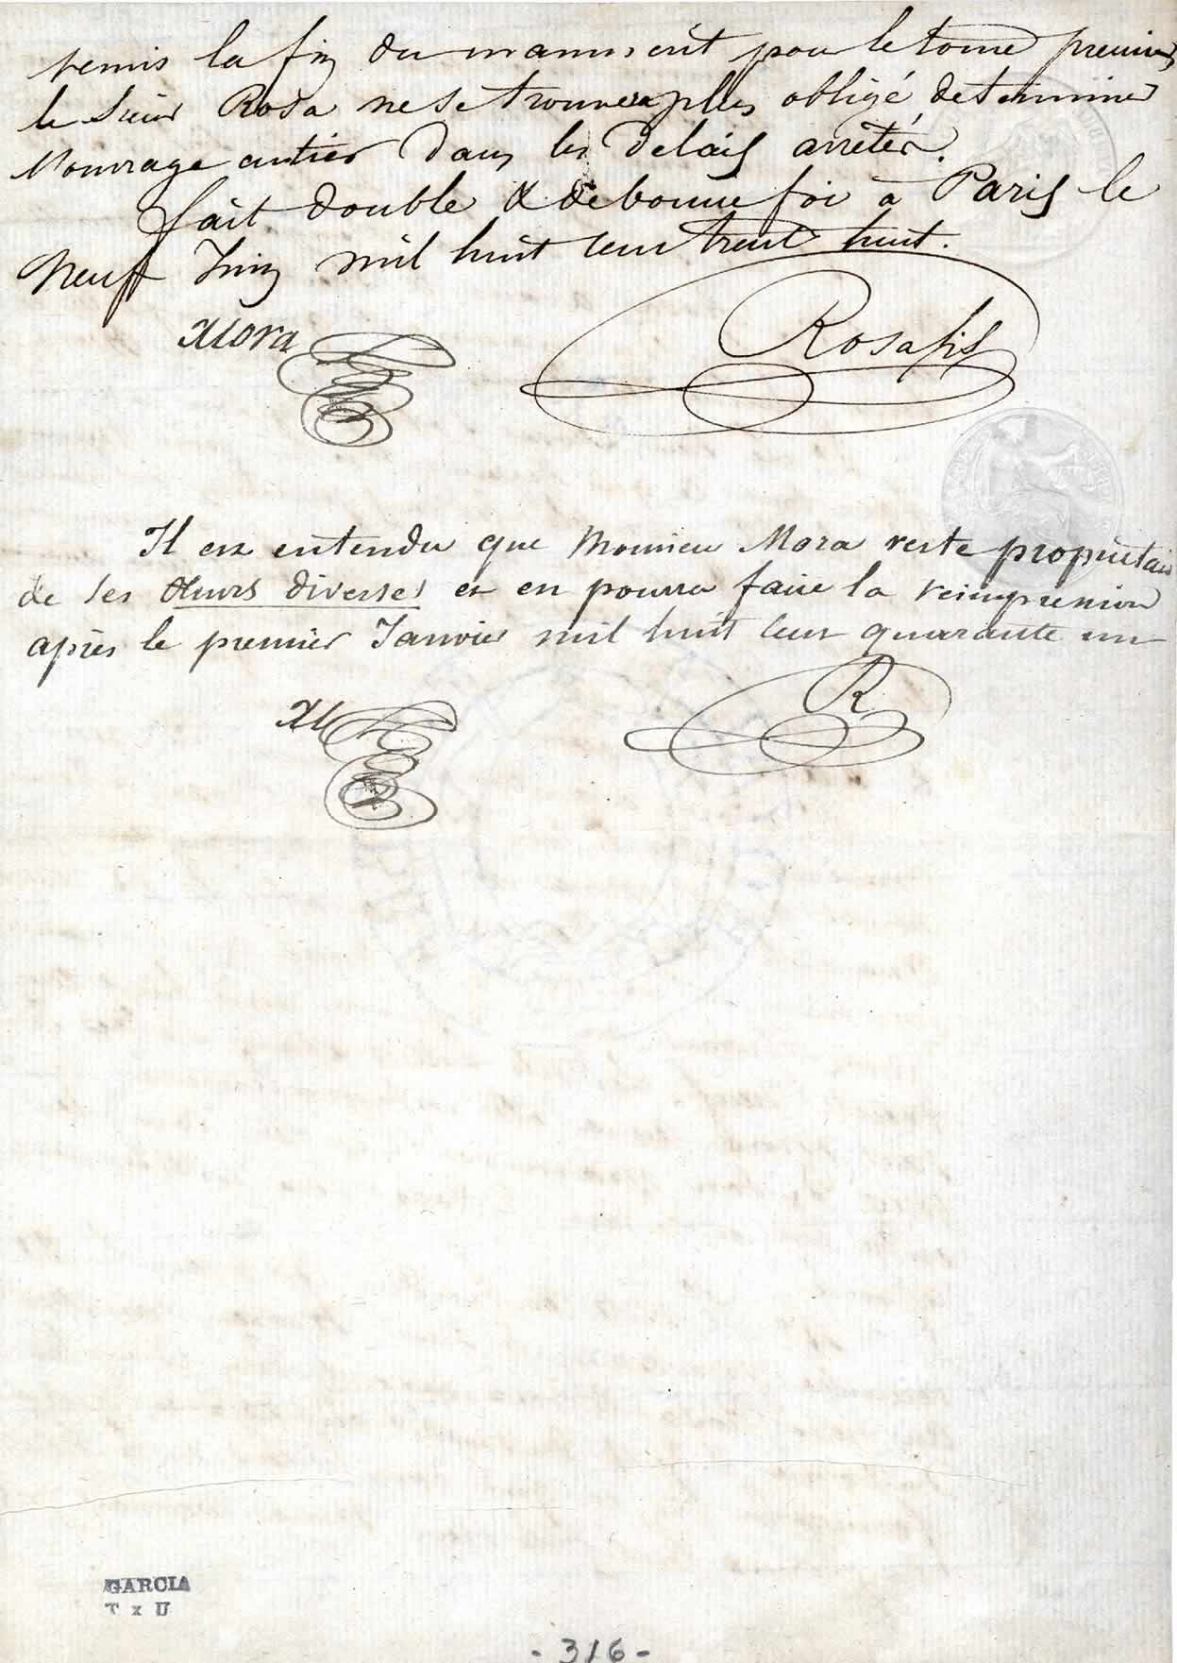 remis la fin du manuscrit pour le tome premier,
le Sieur Rosa ne se trouvera plus obligé de terminer
l'ouvrage entier dans les delais arretés.
fait double & de bonne foi à Paris le
Neuf Juin mil huit cent trent huit.
Mora
Rosa fils
Il est entendu que Monsieur Mora reste proprietaire
de ses Œuvres diverses et en pourra faire la reimpression
après le premier Janvier mil huit cent quarante un
M
R
GARCIA
T x U
- 316 -